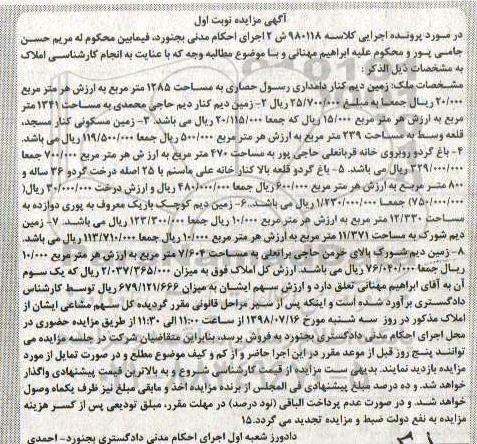 آگهی مزایده نوبت اول
در مورد پرونده اجرایی کلاسه ۹۸۰۱۱۸ ش ۲ اجرای احکام مدنی بجنورد، فیمابین محکوم له مریم حسن
جامی پور و محکوم علیه ابراهیم مهنانی و با موضوع مطالبه وجه که با عنایت به انجام کارشناسی املاک
به مشخصات ذیل الذکر:
مشخصات ملک: زمین دیم کنار دامداری رسول حصاری به مساحت ۱۲۸۵ متر مربع به ارزش هر متر مربع
۲۰/۰۰۰ ریال جمعا به مبلغ ۲۵/۷۰۰/۰۰۰ ریال ۲- زمین دیم کنار دیم حاجی محمدی به مساحت ۱۳۴۱ متر
مربع به ارزش هر متر مربع ۱۵/۰۰۰ ریال که جمعا ۲۰/۱۱۵/۰۰۰ ریال می باشد. ۳- زمین مسکونی کنار مسجد،
قلعه وسط به مساحت ۲۳۹ متر مربع به ارزش هر متر مربع ۵۰۰/۰۰۰ ریال جمعا ۱۱۹/۵۰۰/۰۰۰ ریال می باشد.
۴- باغ گردو روبروی خانه قربانعلی حاجی پور به مساحت ۴۷۰ متر مربع به ارزش هر متر مربع ۷۰۰/۰۰۰ جمعا
۳۲۹/۰۰۰/۰۰۰ ریال می باشد. ۵- باغ گردو قلعه بالا کنار خانه علی ماستم با ۲۵ اصله درخت گردو ۳۶ ساله و
۸۰۰ متر مربع به ارزش هر متر مربع ۶۰۰/۰۰۰ ریال جمعا ۴۸۰/۰۰۰/۰۰۰ ریال و ارزش درخت ۳۰/۰۰۰/۰۰۰ ریال(
۷۵۰/۰۰۰/۰۰۰) جمعا ۱/۲۳۰/۰۰۰/۰۰۰ ریال می باشد. ۶- زمین دیم کوچک باریک معروف به پوری دوازده به
مساحت ۱۲/۳۳۰ متر مربع به ارزش هر متر مربع ۱۰/۰۰۰ ریال جمعا ۱۲۳/۳۰۰/۰۰۰ ریال می باشد. ۷- زمین
دیم شورک به مساحت ۱۱/۳۷۱ متر مربع به ارزش هر متر مربع ۱۰/۰۰۰ ریال جمعا ۱۱۳/۷۱۰/۰۰۰ ریال می باشد.
۸- زمین دیم شورک بالای خرمن حاجی براتعلی به مساحت ۷/۶۰۴ متر مربع به ارزش هر متر مربع ۱۰/۰۰۰
ریال جمعا ۷۶/۰۴۰/۰۰۰ ریال می باشد. ارزش کل املاک فوق به میزان ۲/۰۳۷/۳۶۵/۰۰۰ ریال که یک سوم
آن به آقای ابراهیم مهنانی تعلق دارد و ارزش سهم ایشان به میزان ۶۷۹/۱۲۱/۶۶۶ ریال توسط کارشناس
دادگستری برآورد شده است و اینکه پس از سیر مراحل قانونی مقرر گردیده کل سهم مشاعی ایشان از
املاک مذکور در روز سه شنبه مورخ ۱۳۹۸/۰۷/۱۶ از ساعت ۱۱:۰۰ الی ۱۱:۳۰ از طریق مزایده حضوری در
محل اجرای احکام مدنی دادگستری بجنورد به فروش برسد، بنابراین متقاضیان شرکت در جلسه مزایده می
توانند پنج روز قبل از موعد مقرر در این اجرا حاضر و از کم و کیف موضوع مطلع و در صورت تمایل از مورد
مزایده بازدید نمایند. بدیهی ست مزایده از قیمت کارشناسی شروع و به بالاترین قیمت پیشنهادی واگذار
خواهد شد. و ده درصد مبلغ پیشنهادی فی المجلس از برنده مزایده اخذ و مابقی مبلغ نیز ظرف یکماه وصول
خواهد شد. و در صورت عدم پرداخت الباقی (نود درصد) در مهلت مقرر، مبلغ تودیعی پس از کسر هزینه
مزایده به نفع دولت ضبط و مزایده تجدید می گردد.۱۵
دادورز شعبه اول اجرای احکام مدنی دادگستری بجنورد- احمدی